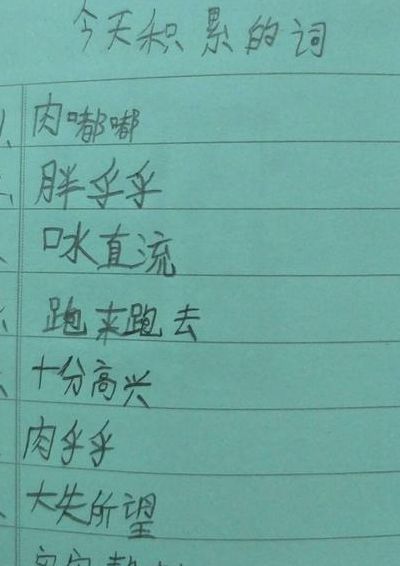 今天积累的词
肉嘟嘟
胖乎乎
口水直流
跑来跑去
十分高兴
肉乎乎
大失所望